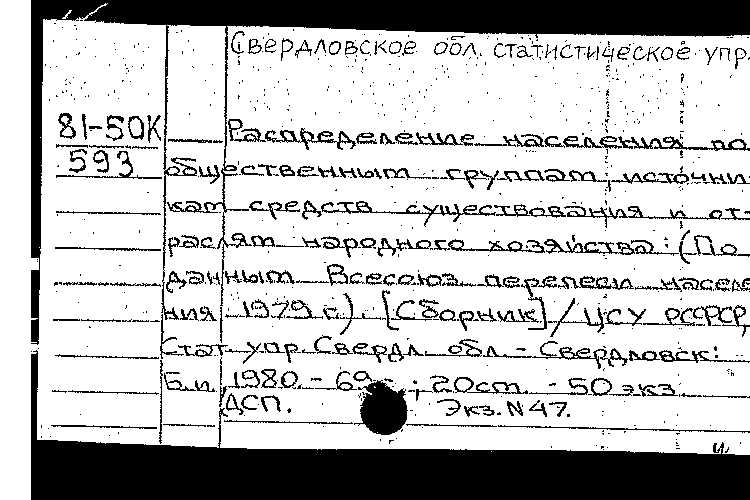 Свердловское обл. статистическое упр.
81-50К
593
Распределение населения по
общественным группам, источни-
кам средств существования и от-
раслям народного хозяйства: (По
данным Всесоюз. переписи населе-
ния 1979 г.). [Сборник] / ЦСУ РСФСР,
Стат. упр. Свердл. обл. - Свердловск:
Б.и., 1980. - 69 ; 20 ст. - 50 экз.
ДСП. Экз. N 47.